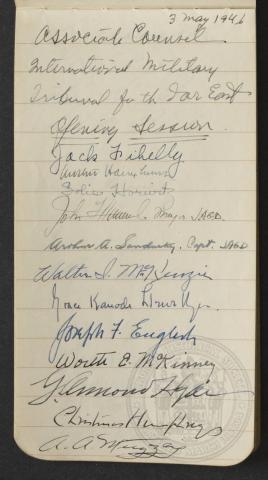 3 May 1946
Associate Counsel
International Military
Tribunal for the Far East
Opening Session.
Jack Fihelly
Solis Horwitz
John F. Hummel Major JAGD.
Arthur A. Sandusky. Capt. JAGD
Walter I. McKenzie
Grace Kanode Llewellyn
Joseph F. English
Worth E. McKinney
G. Osmond Hyde
Christmas Humphreys